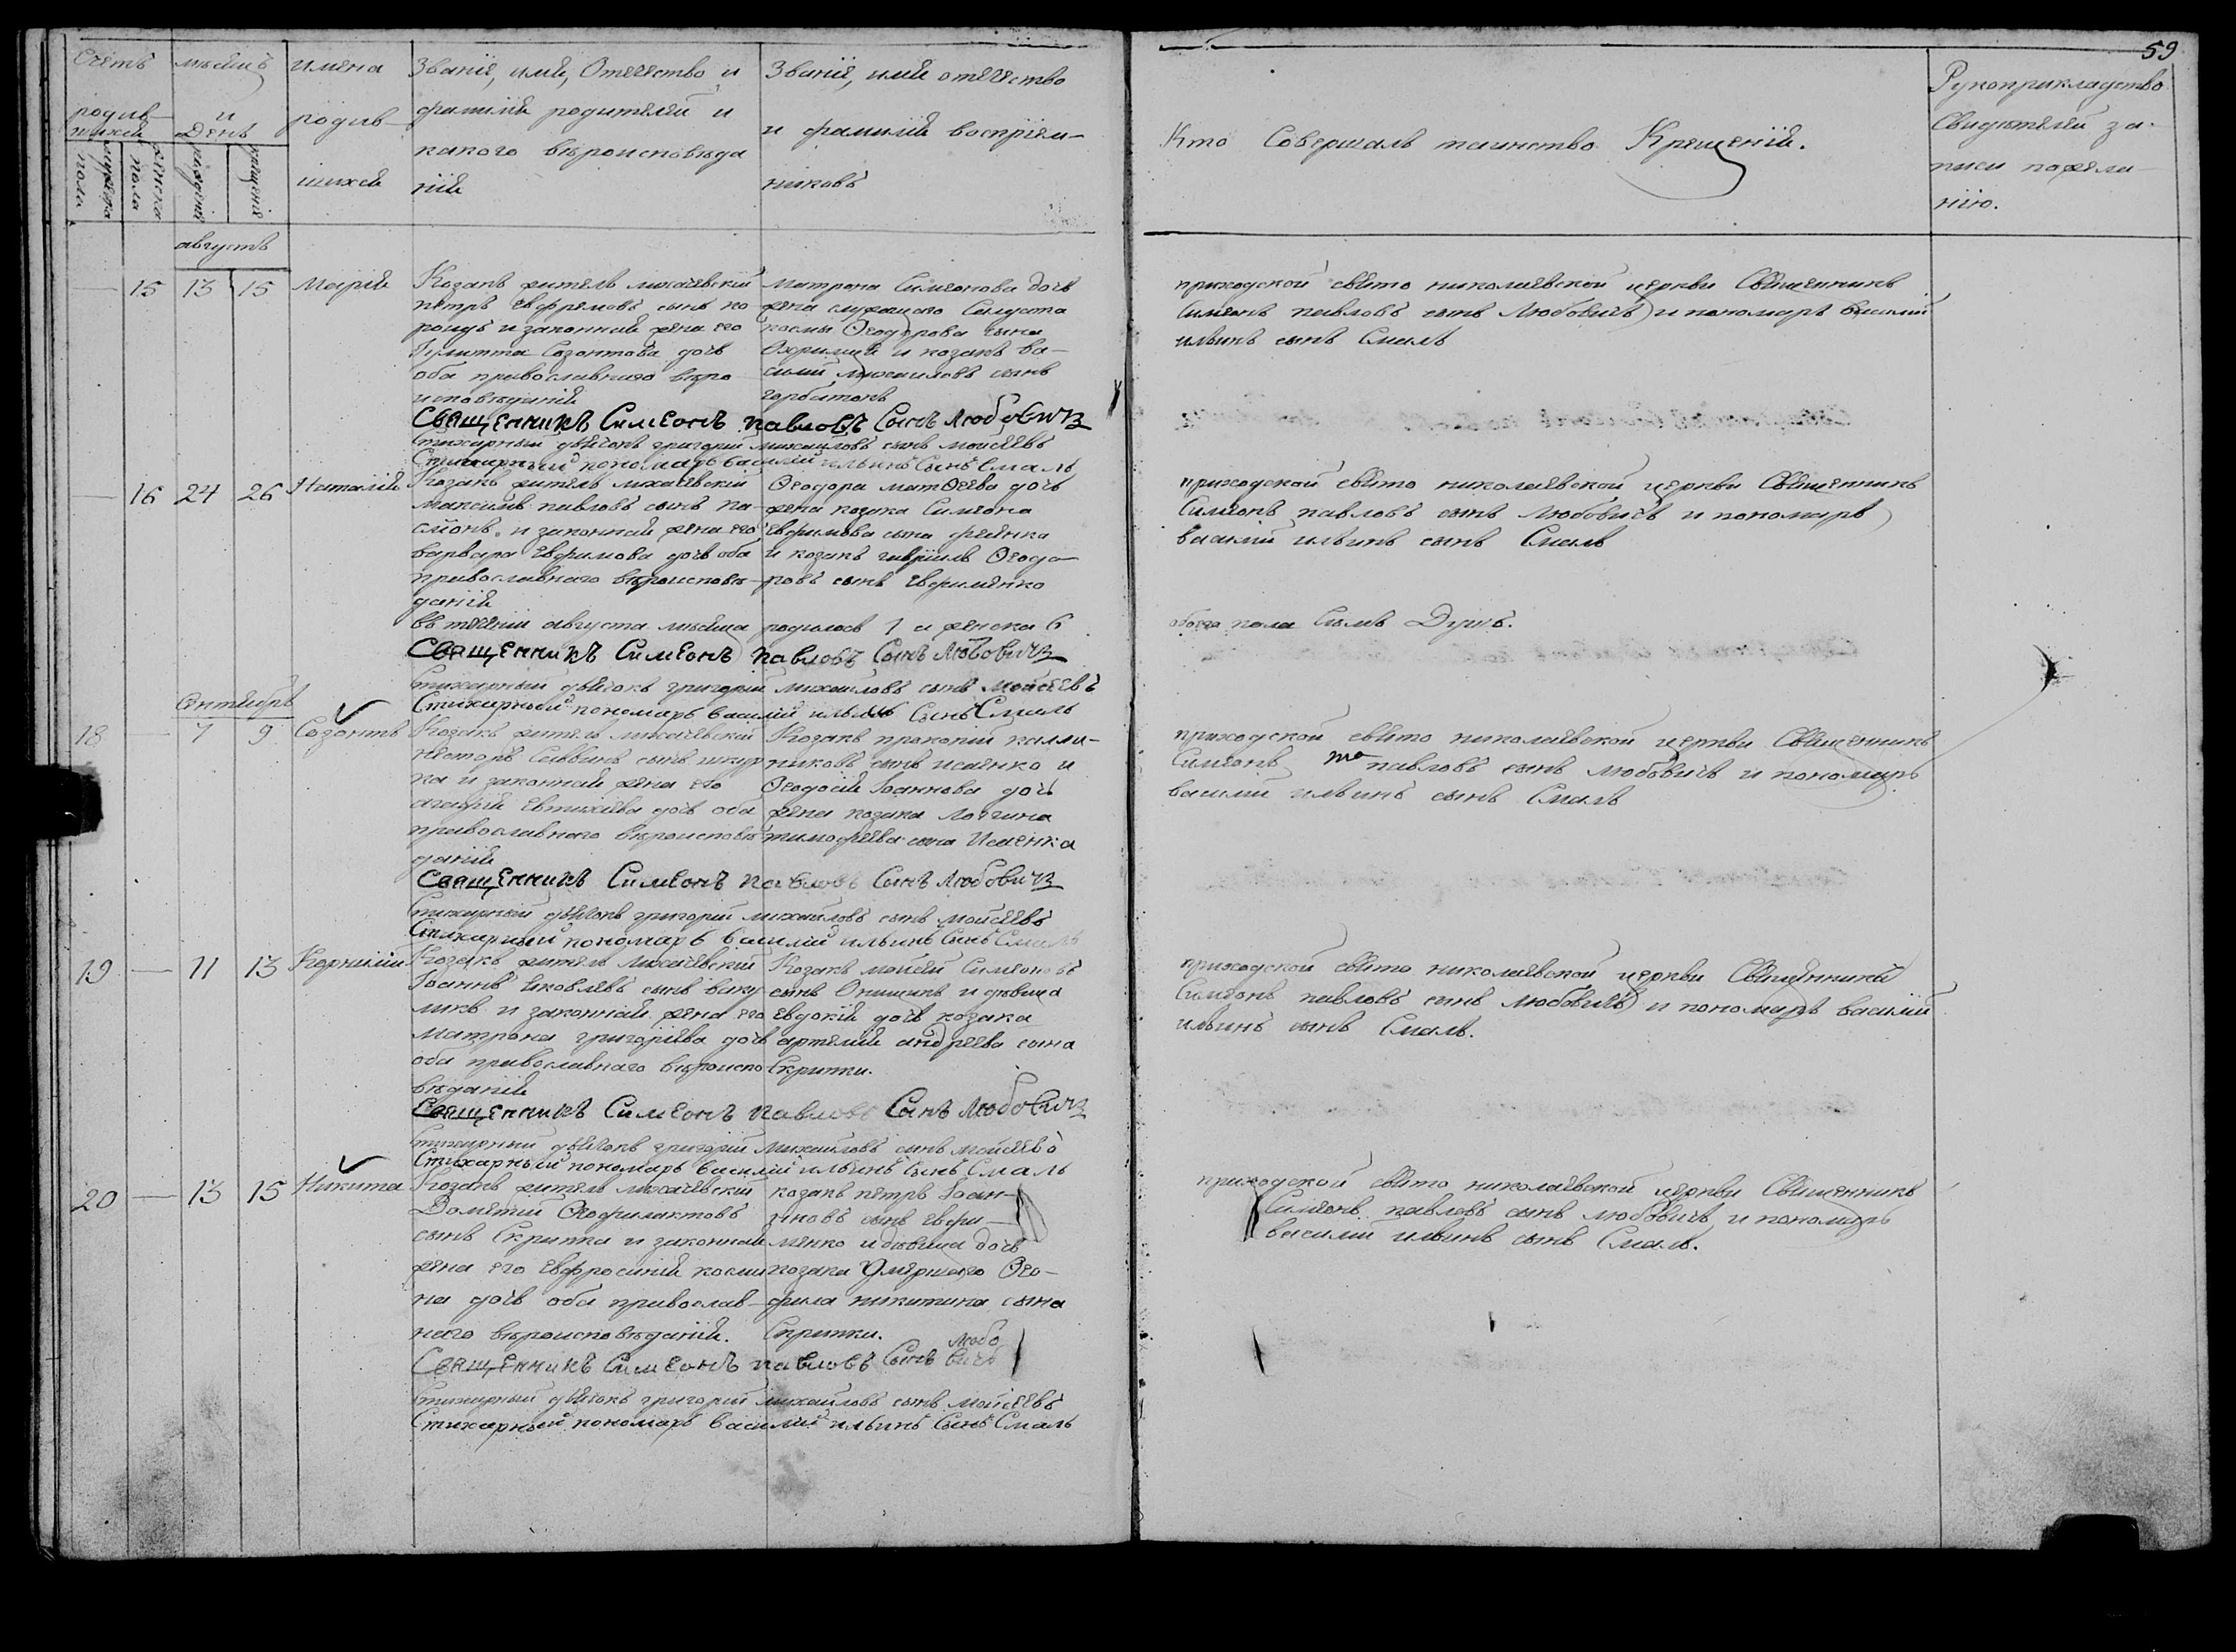 59
Счетъ родив-шихся
мужеска пола
женска пола
мѣсяцъ и День
рожденія
крещенія
имена родив-шихся
Званіе, имя, Отечество, и
фамилія родителей и
какого вѣроисповѣда
нія
Званіе, имя отечество
и фамилія воспріем-
никовъ
Кто Совершалъ таинство Крещенія.
Рукоприкладство
Свидѣтелей за-
писи пожела-
нію.
августъ
— 15 13 15 Марія
Козакъ житель лихачевскій
петръ Евфремовъ сынъ ко
роидъ и законная жена его
Іулитта Созонтова дочь
оба православнаго вѣро
исповѣданія
Матрона Симеонова дочь
жена служащаго Солдата
космы Ѳеодорова сына
Охримия и козакъ ва-
силій михаиловъ сынъ
горбатокъ
приходской свято николаевской церкви Священникъ
Симеонъ павловъ сынъ Любовичъ и пономарь василій
ильинъ сынъ Смаль
Священникъ Симеонъ павловъ Сынъ Любовичъ
Стихарный дьячокъ григорій михаиловъ сынъ моисеевъ
Стихарный пономарь василій ильинъ Сынъ Смаль
— 16 24 26 Наталія
Козакъ житель лихачевскій
максимъ павловъ сынъ ка-
сіонъ, и законная жена его
варвара Евфимова дочь оба
православнаго вѣроисповѣ-
данія
Ѳеодора матѳеева дочь
жена козака Симеона
Евфимова сына федянка
и козакъ гавріилъ Ѳеодо-
ровъ сынъ Евфименко
приходской свято николаевской церкви Священникъ
Симеонъ павловъ сынъ Любовичъ и пономарь
василій ильинъ сынъ Смаль
въ теченіи августа мѣсяца родилось 1 а женска 6
обоего пола Семь Душъ.
Священникъ Симеонъ павловъ Сынъ Любовичъ
стихарный дьячокъ григорій михаиловъ сынъ Моисеевъ
Стихарный пономарь василій ильинъ Сынъ Смаль
Сентябрь
18 — 7 9 Созонтъ
Козакъ житель лихачевскій
несторъ Саввинъ сынъ шкур
ка и законная жена его
агафія Евтихіева дочь оба
православнаго вѣроисповѣ
данія
Козакъ прокопій калли-
никовъ сынъ исаенко и
Ѳеодосія Іоаннова дочь
жена козака Логгина
тимофеева сына Исаенка
приходской свято николаевской церкви Священникъ
Симеонъ павловъ сынъ любовичъ и пономарь
василій ильинъ сынъ Смаль
Священникъ Симеонъ павловъ Сынъ Любовичъ
Стихарный дьячокъ григорій михаиловъ сынъ моисеевъ
Стихарный пономарь василій ильинъ Сынъ Смаль
19 — 11 13 Корнилій
Козакъ житель лихачевскій
Іоаннъ Яковлевъ сынъ ваку
ликъ и законная жена его
матрона григоріева дочь
оба православнаго вѣроиспо
вѣданія
Козакъ моисей Симеоновъ
сынъ Онищикъ и девица
Евдокія дочь козака
артемія андреева сына
Скрипки.
приходской свято николаевской церкви Священникъ
Симеонъ павловъ сынъ Любовичъ и пономарь василій
ильинъ сынъ Смаль.
Священникъ Симеонъ павловъ Сынъ Любовичъ
Стихарный дьячокъ григорій Михаиловъ сынъ моисеевъ
Стихарный пономарь василій ильинъ Сынъ Смаль
20 — 13 15 Никита
Козакъ житель лихачевскій
Дометій Ѳеофилактовъ
сынъ Скрипка и законная
жена его Евфросинія косми
на дочь оба православ-
наго вѣроисповѣданія.
козакъ петръ Іоан-
новъ сынъ Евфи-
менко и девица дочь
козака Умершаго Ѳео-
фила никитина сына
Скрипки.
приходской свято николаевской церкви Священникъ
Симеонъ павловъ сынъ любовичъ и пономарь
василій ильинъ сынъ Смаль.
Священникъ Симеонъ павловъ Сынъ Любовичъ
Стихарный дьячокъ григорій михаиловъ сынъ Моисеевъ
Стихарный пономарь василій ильинъ Сынъ Смаль